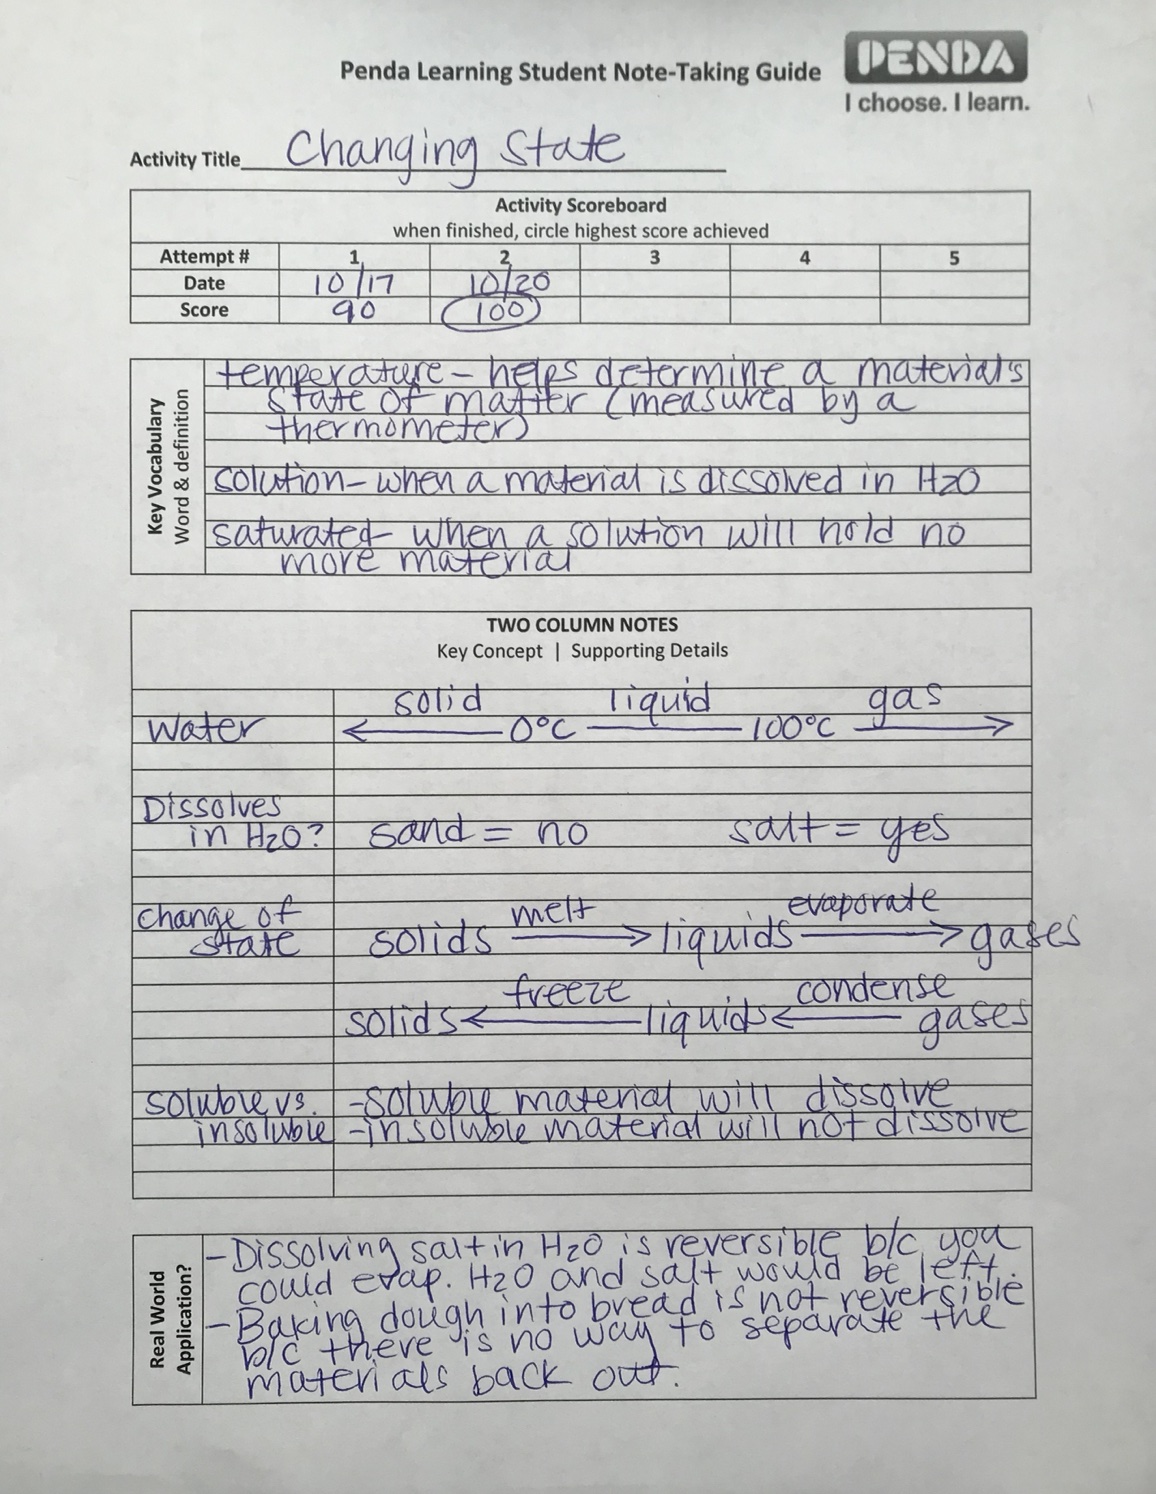 PENDA
Penda Learning Student Note-Taking Guide
I choose. I learn.
Activity Title Changing State
Activity Scoreboard
when finished, circle highest score achieved
Attempt # 1 2 3 4 5
Date 10/17 10/20
Score 90 100
Key Vocabulary
Word & definition
temperature – helps determine a material's
state of matter (measured by a
thermometer)
solution – when a material is dissolved in H2O
saturated – when a solution will hold no
more material
TWO COLUMN NOTES
Key Concept | Supporting Details
solid liquid gas
Water ← 0°C — 100°C →
Dissolves
in H2O? sand = no salt = yes
change of melt evaporate
state solids → liquids → gases
freeze condense
solids ← liquids ← gases
soluble vs. - soluble material will dissolve
insoluble - insoluble material will not dissolve
Real World
Application?
- Dissolving salt in H2O is reversible b/c you
could evap. H2O and salt would be left.
- Baking dough into bread is not reversible
b/c there is no way to separate the
materials back out.